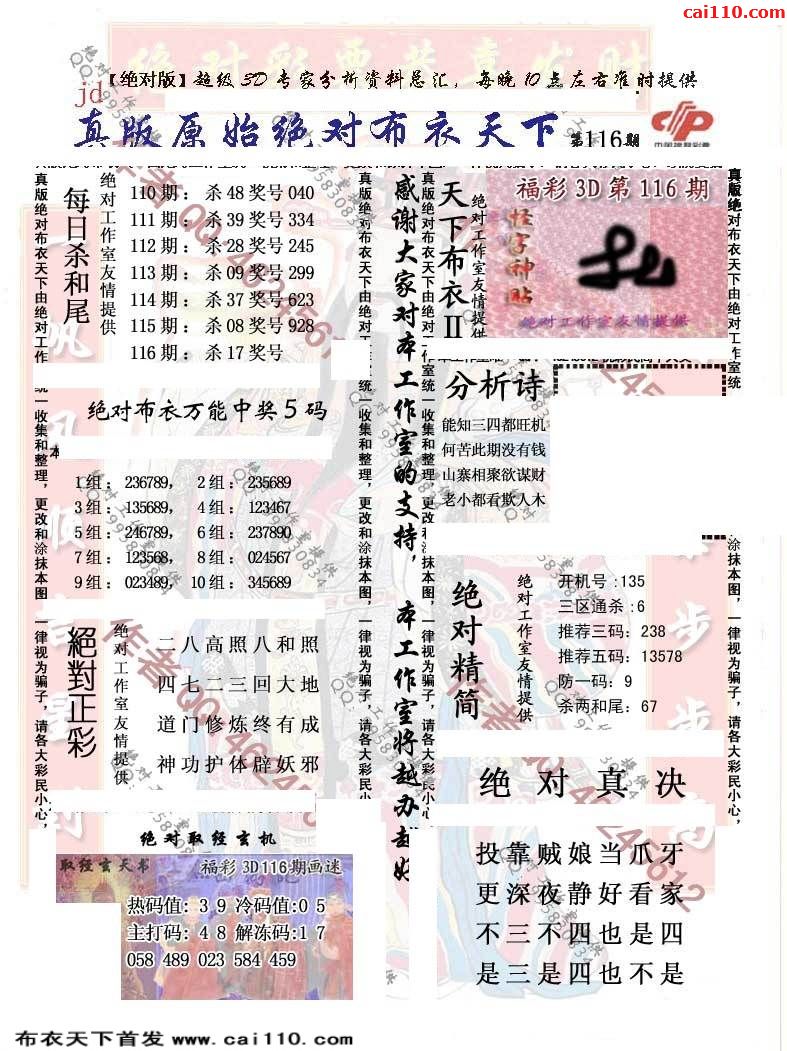 cai110.com
【绝对版】超级3D专家分析资料总汇，每晚10点左右准时提供
jd
真版原始绝对布衣天下 第116期
中国福利彩票
每日杀和尾
绝对工作室友情提供
110期：杀48奖号040
111期：杀39奖号334
112期：杀28奖号245
113期：杀09奖号299
114期：杀37奖号623
115期：杀08奖号928
116期：杀17奖号
绝对布衣万能中奖5码
1组：236789，2组：235689
3组：135689，4组：123467
5组：246789，6组：237890
7组：123568，8组：024567
9组：023489，10组：345689
絕對正彩
绝对工作室友情提供
二八高照八和照
四七二三回大地
道门修炼终有成
神功护体辟妖邪
绝对取经玄机
取经玄天书 福彩3D116期画迷
热码值：39冷码值:05
主打码：48解冻码:17
058 489 023 584 459
真版绝对布衣天下由绝对工作室统一收集和整理，更改和涂抹本图，一律视为骗子，请各大彩民小心，
感谢大家对本工作室的支持，本工作室将越办越好
天下布衣II
绝对工作室友情提供
福彩3D第116期
怪字神贴
绝对工作室友情提供
分析诗
能知三四都旺机
何苦此期没有钱
山寨相聚欲谋财
老小都看欺人木
绝对精简
绝对工作室友情提供
开机号:135
三区通杀:6
推荐三码：238
推荐五码：13578
防一码：9
杀两和尾：67
绝对真决
投靠贼娘当爪牙
更深夜静好看家
不三不四也是四
是三是四也不是
布衣天下首发 www.cai110.com